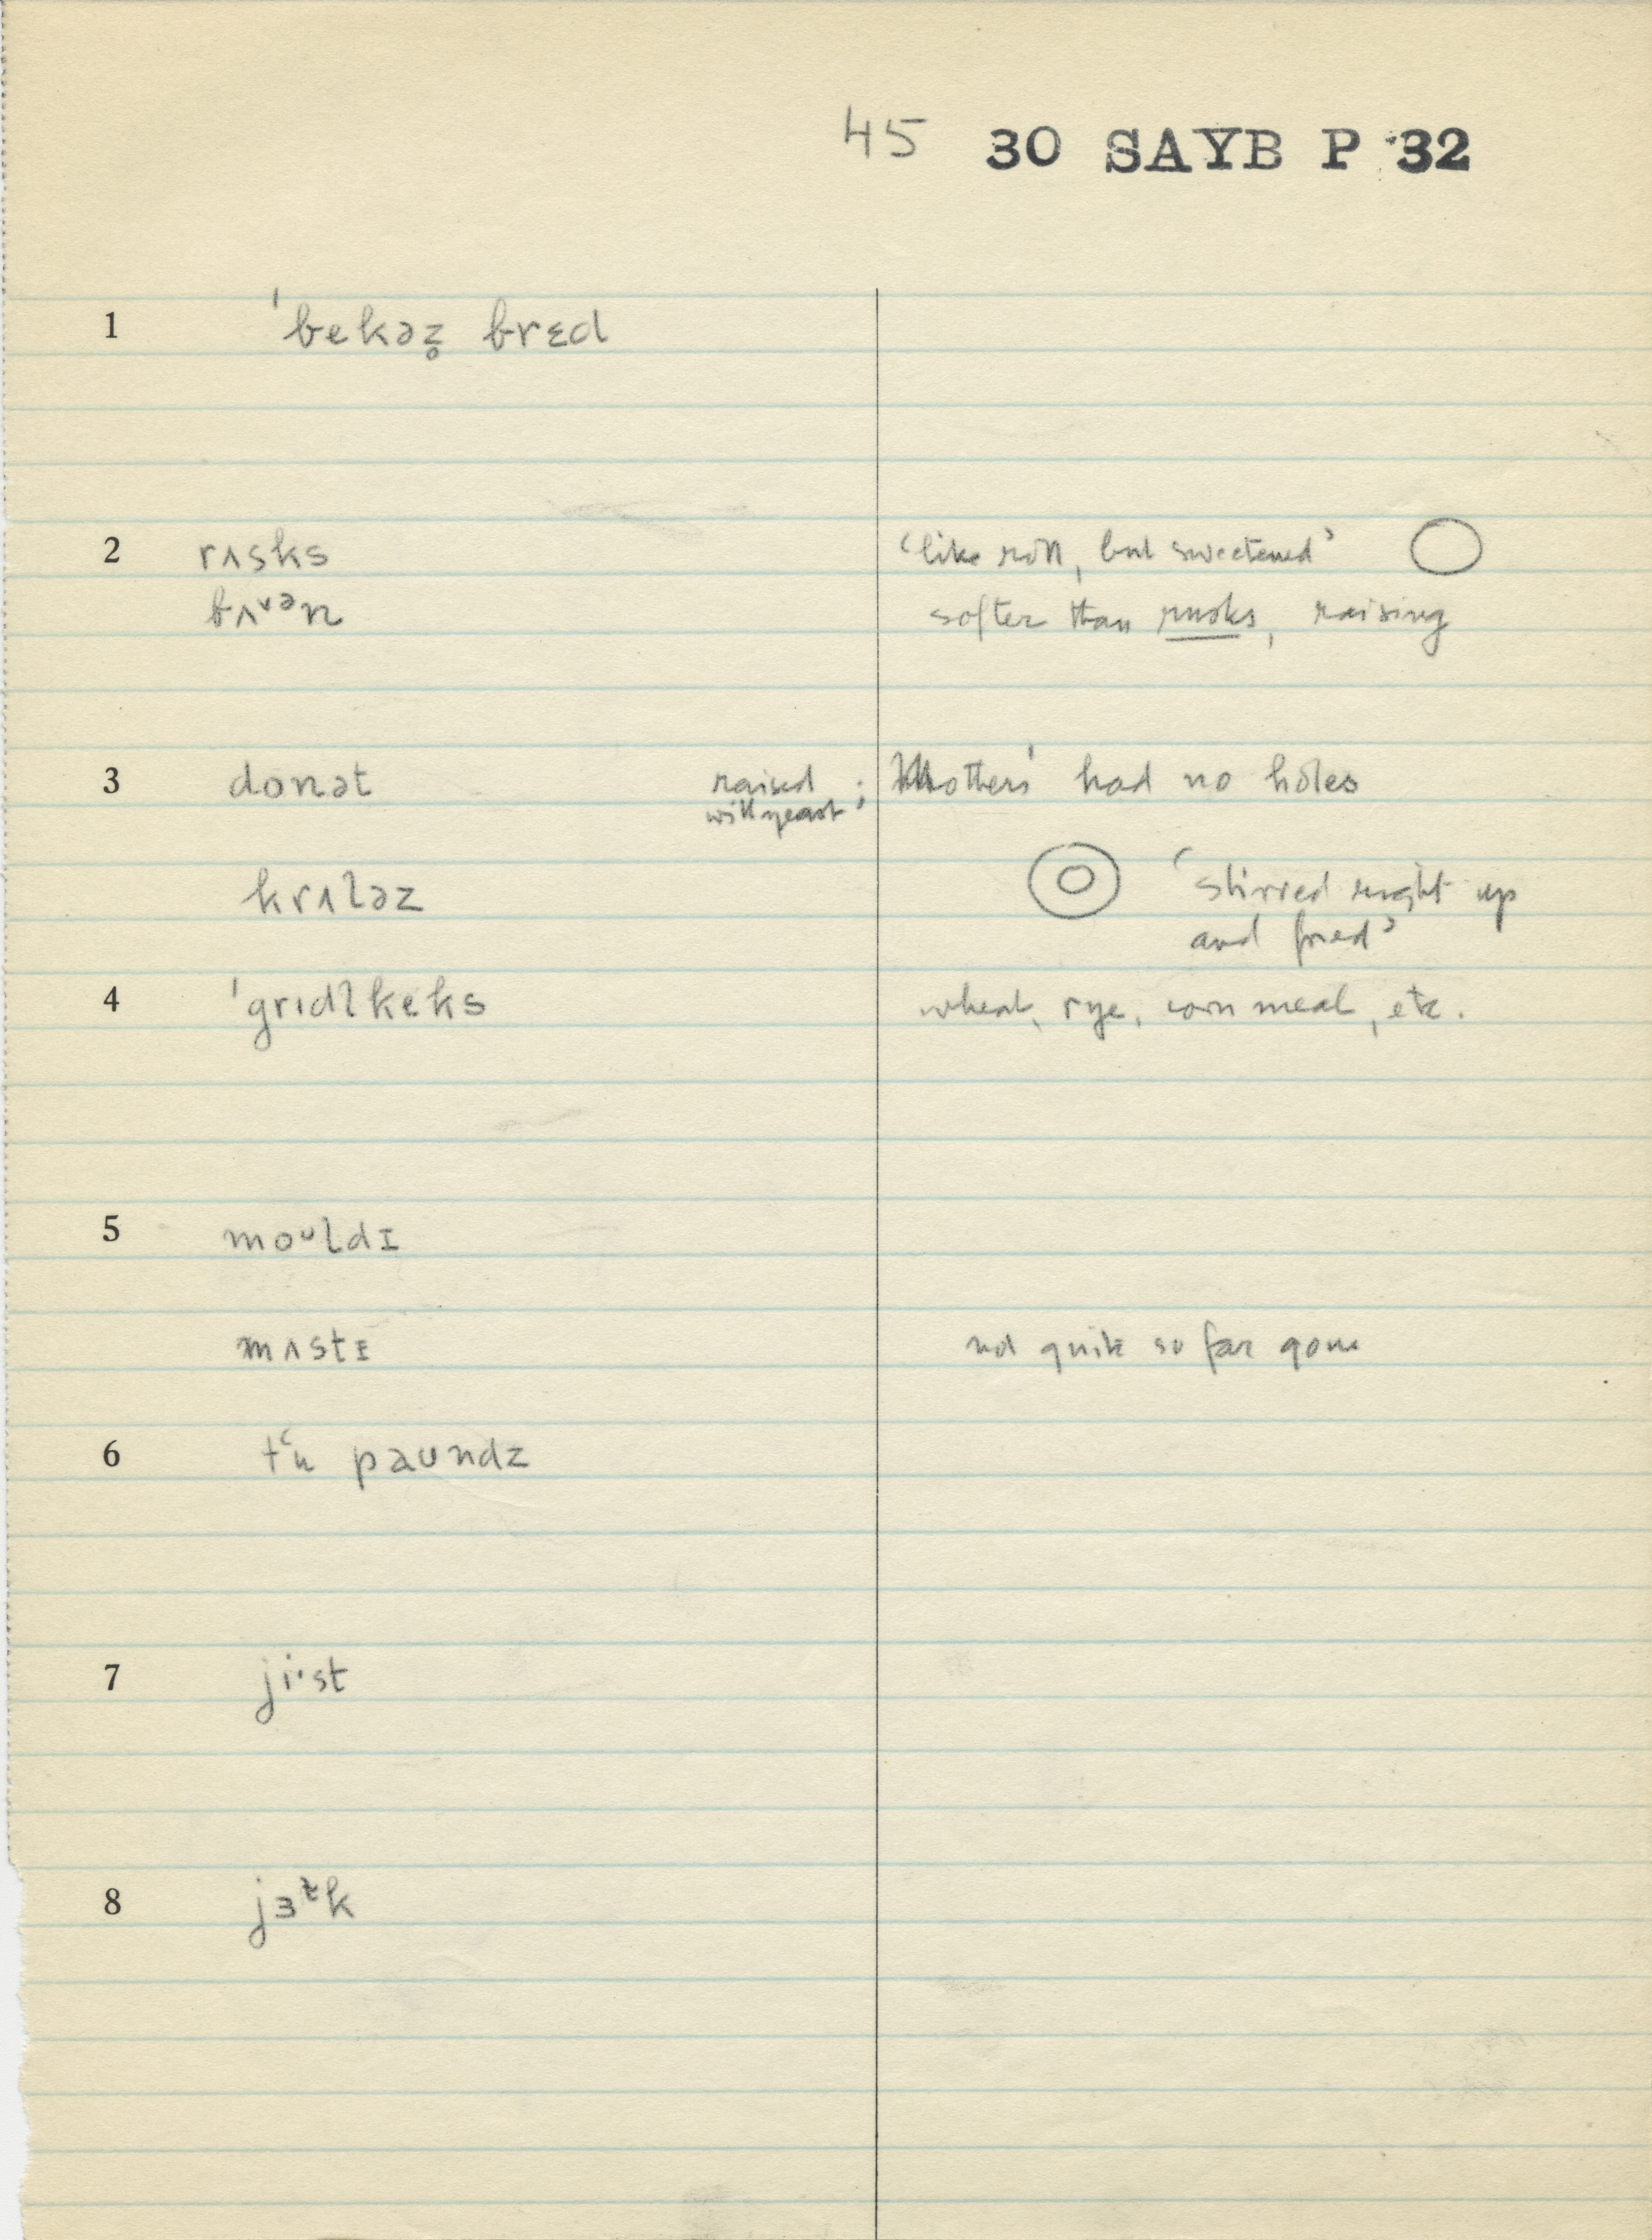 45 30 SAYB P 32
1 ˈbekəz̥ brɛd
2 rʌsks ‘like roll, but sweetened’
bʌ˅ᵊn softer than rusks, raising
3 donət raised with yeast; Mothers' had no holes
krʌləz ‘stirred right up
and fried’
4 ˈgrɪdl̩keks wheat, rye, corn meal, etc.
5 moᵘldɪ
mʌstɪ not quite so far gone
6 tʻu paundz
7 ji·st
8 jɜ k